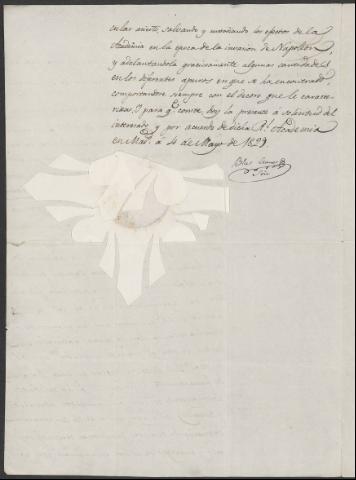 en las ausente, salvando y custodiando los efectos de la
Academia en la epoca de la invasion de Napoleon,
y adelantandola graciosamente algunas cantidades
en los diferentes apuros en que se ha encontrado,
comportandose siempre con el decoro que le caracte-
riza; Y para q.e conste, doy la presente a solicitud del
interesado y por acuerdo de dicha R.l Academia
en Mad.d a 4 de Mayo de 1829.